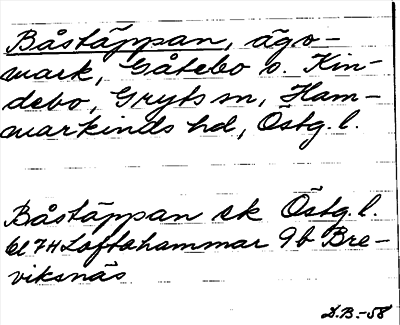 Båstäppan, ägo-
mark, Gåtebo o. Kin-
debo, Gryts sn, Ham-
markinds hd, Östg. l.
Båstäppan ek Östg. l.
bl 74 Loftahammar 9b Bre-
viksnäs
D.B.-58